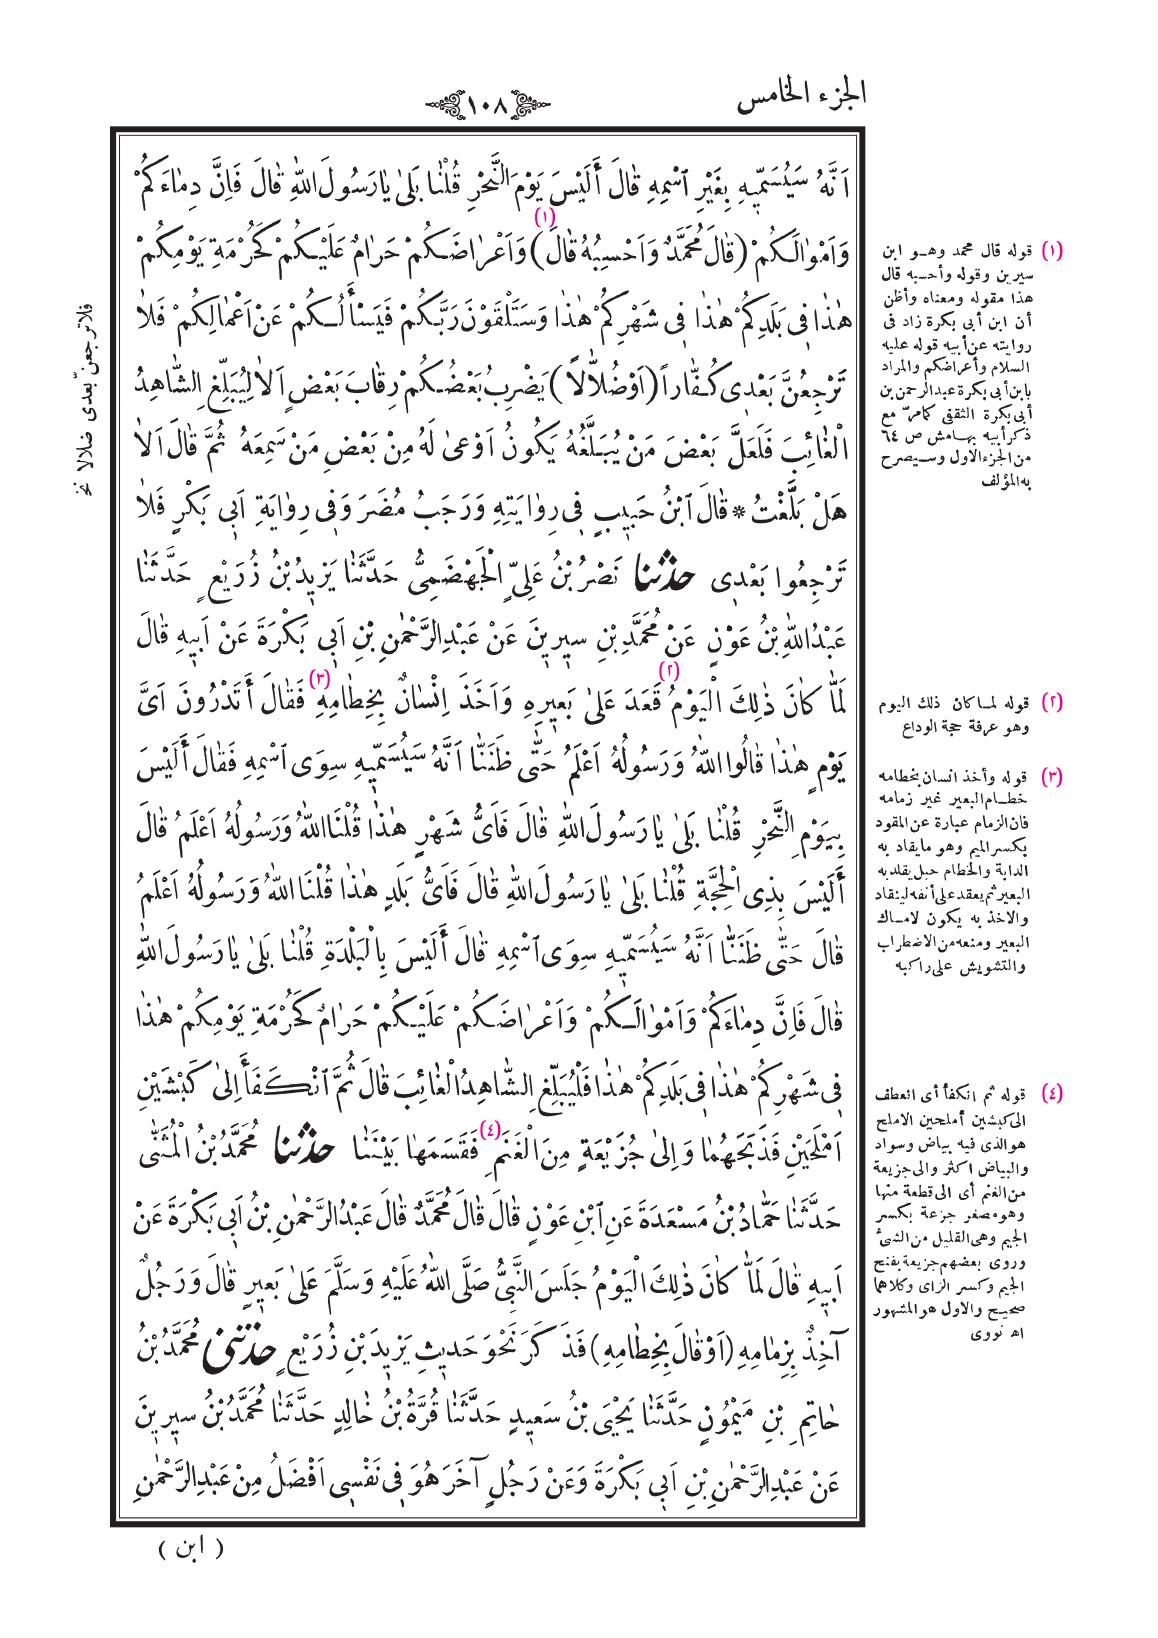 الجزء الخامس
١٠٨
اَنَّهُ سَيُسَمّيهِ بِغَيْرِ اسْمِهِ قَالَ أَلَيْسَ يَوْمَ النَّحْرِ قُلْنَا بَلىٰ يَا رَسُولَ اللّٰهِ قَالَ فَاِنَّ دِمَاءَكُمْ
وَاَمْوٰالَكُمْ (قَالَ مُحَمَّدٌ وَاَحْسِبُهُ قَالَ) (١) وَاَعْرَاضَكُمْ حَرَامٌ عَلَيْكُمْ كَحُرْمَةِ يَوْمِكُمْ
هٰذَا فِي بَلَدِكُمْ هٰذَا فِي شَهْرِكُمْ هٰذَا وَسَتَلْقَوْنَ رَبَّكُمْ فَيَسْأَلُكُمْ عَنْ اَعْمَالِكُمْ فَلَا
تَرْجِعُنَّ بَعْدِي كُفَّاراً (اَوْ ضُلَّالاً) يَضْرِبُ بَعْضُكُمْ رِقَابَ بَعْضٍ اَلَا لِيُبَلِّغِ الشَّاهِدُ
الْغَائِبَ فَلَعَلَّ بَعْضَ مَنْ يُبَلَّغُهُ يَكُونُ اَوْعىٰ لَهُ مِنْ بَعْضِ مَنْ سَمِعَهُ ثُمَّ قَالَ اَلَا
هَلْ بَلَّغْتُ * قَالَ ابْنُ حَبِيبٍ فِي رِوَايَتِهِ وَرَجَبُ مُضَرَ وَفِي رِوَايَةِ اَبِي بَكْرٍ فَلَا
تَرْجِعُوا بَعْدِي حدثنا نَصْرُ بْنُ عَلِيٍّ الْجَهْضَمِيُّ حَدَّثَنَا يَزِيدُ بْنُ زُرَيْعٍ حَدَّثَنَا
عَبْدُ اللّٰهِ بْنُ عَوْنٍ عَنْ مُحَمَّدِ بْنِ سِيرِينَ عَنْ عَبْدِ الرَّحْمٰنِ بْنِ اَبِي بَكْرَةَ عَنْ اَبِيهِ قَالَ
لَمَّا كَانَ ذٰلِكَ الْيَوْمُ (٢) قَعَدَ عَلىٰ بَعِيرِهِ وَاَخَذَ اِنْسَانٌ بِخِطَامِهِ (٣) فَقَالَ أَتَدْرُونَ اَيَّ
يَوْمٍ هٰذَا قَالُوا اللّٰهُ وَرَسُولُهُ اَعْلَمُ حَتّٰى ظَنَنَّا اَنَّهُ سَيُسَمّيهِ سِوَى اسْمِهِ فَقَالَ أَلَيْسَ
بِيَوْمِ النَّحْرِ قُلْنَا بَلىٰ يَا رَسُولَ اللّٰهِ قَالَ فَاَيُّ شَهْرٍ هٰذَا قُلْنَا اللّٰهُ وَرَسُولُهُ اَعْلَمُ قَالَ
أَلَيْسَ بِذِي الْحِجَّةِ قُلْنَا بَلىٰ يَا رَسُولَ اللّٰهِ قَالَ فَاَيُّ بَلَدٍ هٰذَا قُلْنَا اللّٰهُ وَرَسُولُهُ اَعْلَمُ
قَالَ حَتّٰى ظَنَنَّا اَنَّهُ سَيُسَمّيهِ سِوَى اسْمِهِ قَالَ أَلَيْسَ بِالْبَلْدَةِ قُلْنَا بَلىٰ يَا رَسُولَ اللّٰهِ
قَالَ فَاِنَّ دِمَاءَكُمْ وَاَمْوٰالَكُمْ وَاَعْرَاضَكُمْ عَلَيْكُمْ حَرَامٌ كَحُرْمَةِ يَوْمِكُمْ هٰذَا
فِي شَهْرِكُمْ هٰذَا فِي بَلَدِكُمْ هٰذَا فَلْيُبَلِّغِ الشَّاهِدُ الْغَائِبَ قَالَ ثُمَّ انْكَفَأَ اِلىٰ كَبْشَيْنِ
اَمْلَحَيْنِ فَذَبَحَهُمَا وَاِلىٰ جُزَيْعَةٍ مِنَ الْغَنَمِ (٤) فَقَسَمَهَا بَيْنَنَا حدثنا مُحَمَّدُ بْنُ الْمُثَنّٰى
حَدَّثَنَا حَمَّادُ بْنُ مَسْعَدَةَ عَنِ ابْنِ عَوْنٍ قَالَ قَالَ مُحَمَّدٌ قَالَ عَبْدُ الرَّحْمٰنِ بْنُ اَبِي بَكْرَةَ عَنْ
اَبِيهِ قَالَ لَمَّا كَانَ ذٰلِكَ الْيَوْمُ جَلَسَ النَّبِيُّ صَلَّى اللّٰهُ عَلَيْهِ وَسَلَّمَ عَلىٰ بَعِيرٍ قَالَ وَرَجُلٌ
آخِذٌ بِزِمَامِهِ (اَوْ قَالَ بِخِطَامِهِ) فَذَكَرَ نَحْوَ حَدِيثِ يَزِيدَ بْنِ زُرَيْعٍ حدثني مُحَمَّدُ بْنُ
حَاتِمِ بْنِ مَيْمُونٍ حَدَّثَنَا يَحْيَى بْنُ سَعِيدٍ حَدَّثَنَا قُرَّةُ بْنُ خَالِدٍ حَدَّثَنَا مُحَمَّدُ بْنُ سِيرِينَ
عَنْ عَبْدِ الرَّحْمٰنِ بْنِ اَبِي بَكْرَةَ وَعَنْ رَجُلٍ آخَرَ هُوَ فِي نَفْسِي اَفْضَلُ مِنْ عَبْدِ الرَّحْمٰنِ
( ابن )
(١) قوله قال محمد وهو ابن
سيرين وقوله وأحسبه قال
هذا مقوله ومعناه وأظن
أن ابن أبى بكرة زاد فى
روايته عن أبيه قوله عليه
السلام وأعراضكم والمراد
بابن أبى بكرة عبدالرحمن بن
أبى بكرة الثقفى كما مرّ مع
ذكر أبيه بهامش ص ٦٤
من الجزء الاول وسيصرح
به المؤلف
(٢) قوله لما كان ذلك اليوم
وهو عرفة حجة الوداع
(٣) قوله وأخذ انسان بخطامه
خطام البعير غير زمامه
فان الزمام عبارة عن المقود
بكسر الميم وهو ما يقاد به
الدابة والخطام حبل يقلد به
البعير ثم يعقد على أنفه لينقاد
والاخذ به يكون لامساك
البعير ومنعه من الاضطراب
والتشويش على راكبه
(٤) قوله ثم انكفأ أى انعطف
الى كبشين أملحين الاملح
هو الذى فيه بياض وسواد
والبياض اكثر والى جزيعة
من الغنم أى الى قطعة منها
وهو مصغر جزعة بكسر
الجيم وهى القليل من الشىء
وروى بعضهم جزيعة بفتح
الجيم وكسر الزاى وكلاهما
صحيح والاول هو المشهور
اه نووى
فلا ترجعنّ بعدى ضلالا نخ